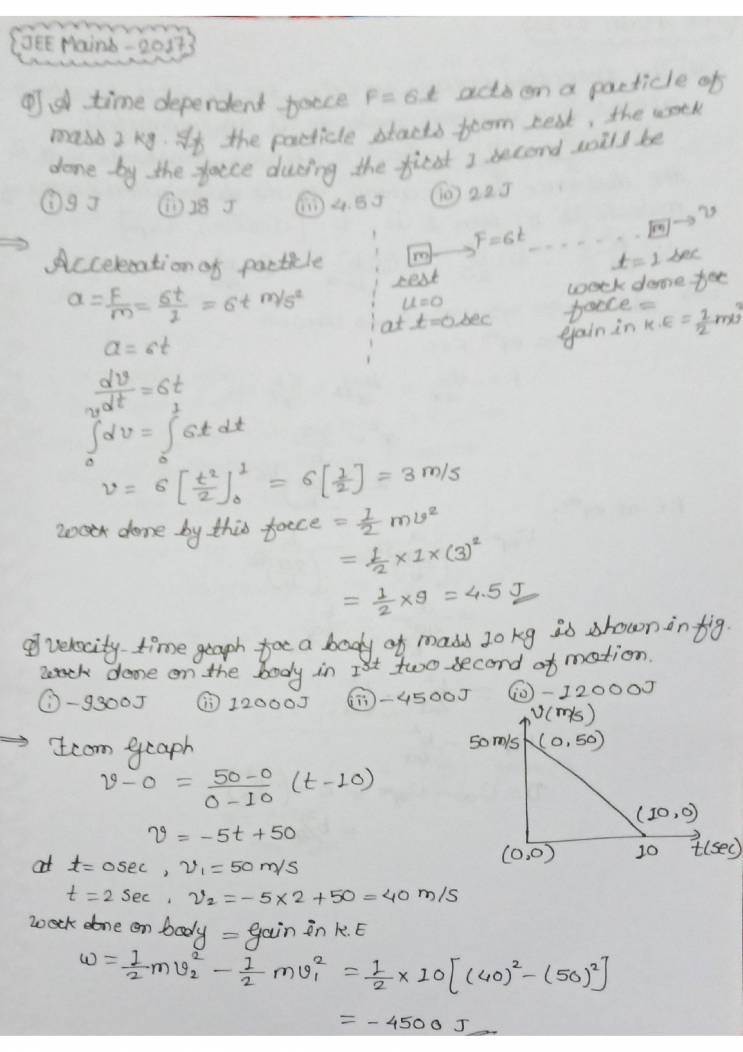 JEE Mains - 2017
Q] A time dependent force F = 6t acts on a particle of
mass 1 kg. If the particle starts from rest, the work
done by the force during the first 1 second will be
(i) 9 J (ii) 18 J (iii) 4.5 J (iv) 22 J
⇒ Acceleration of particle
a = F/m = 6t/1 = 6t m/s²
a = 6t
dv/dt = 6t
∫₀ᵛ dv = ∫₀¹ 6t dt
v = 6 [t²/2]₀¹ = 6 [1/2] = 3 m/s
m → F = 6t ...... m → v
rest
u = 0
at t = 0 sec
t = 1 sec
work done for
force =
gain in K.E = 1/2 mv²
work done by this force = 1/2 mv²
= 1/2 × 1 × (3)²
= 1/2 × 9 = 4.5 J
Q] Velocity-time graph for a body of mass 10 kg is shown in fig.
work done on the body in Ist two second of motion.
(i) -9300J (ii) 12000J (iii) -4500J (iv) -12000J
⇒ From graph
v - 0 = (50 - 0)/(0 - 10) (t - 10)
v = -5t + 50
v(m/s)
50 m/s (0, 50)
(10, 0)
(0,0) 10 t(sec)
at t = 0 sec, v₁ = 50 m/s
t = 2 sec, v₂ = -5 × 2 + 50 = 40 m/s
work done on body = gain in K.E
w = 1/2 mv₂² - 1/2 mv₁² = 1/2 × 10 [(40)² - (50)²]
= -4500 J